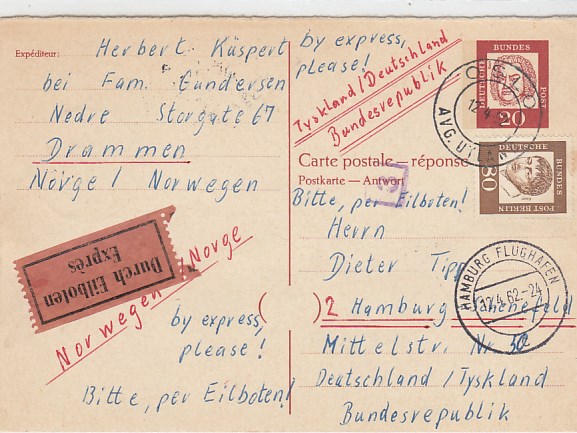 Expéditeur:
Herbert Küspert
bei Fam. Gundersen
Nedre Storgate 67
Drammen
Norge / Norwegen
Durch Eilboten
Exprès
Norwegen / Norge
by express,
please!
Bitte, per Eilboten!
by express,
please!
Tyskland / Deutschland
Bundesrepublik
Carte postale – réponse
Postkarte – Antwort
Bitte, per Eilboten!
Herrn
Dieter Tipp
( ) 2 Hamburg Schenefeld
Mittelstr. Nr.
Deutschland / Tyskland
Bundesrepublik
DEUTSCHE
BUNDES
POST
20
DEUTSCHE
BUNDES
POST BERLIN
30
OSLO
AVG. UTLAND
HAMBURG FLUGHAFEN
12.4.62-24